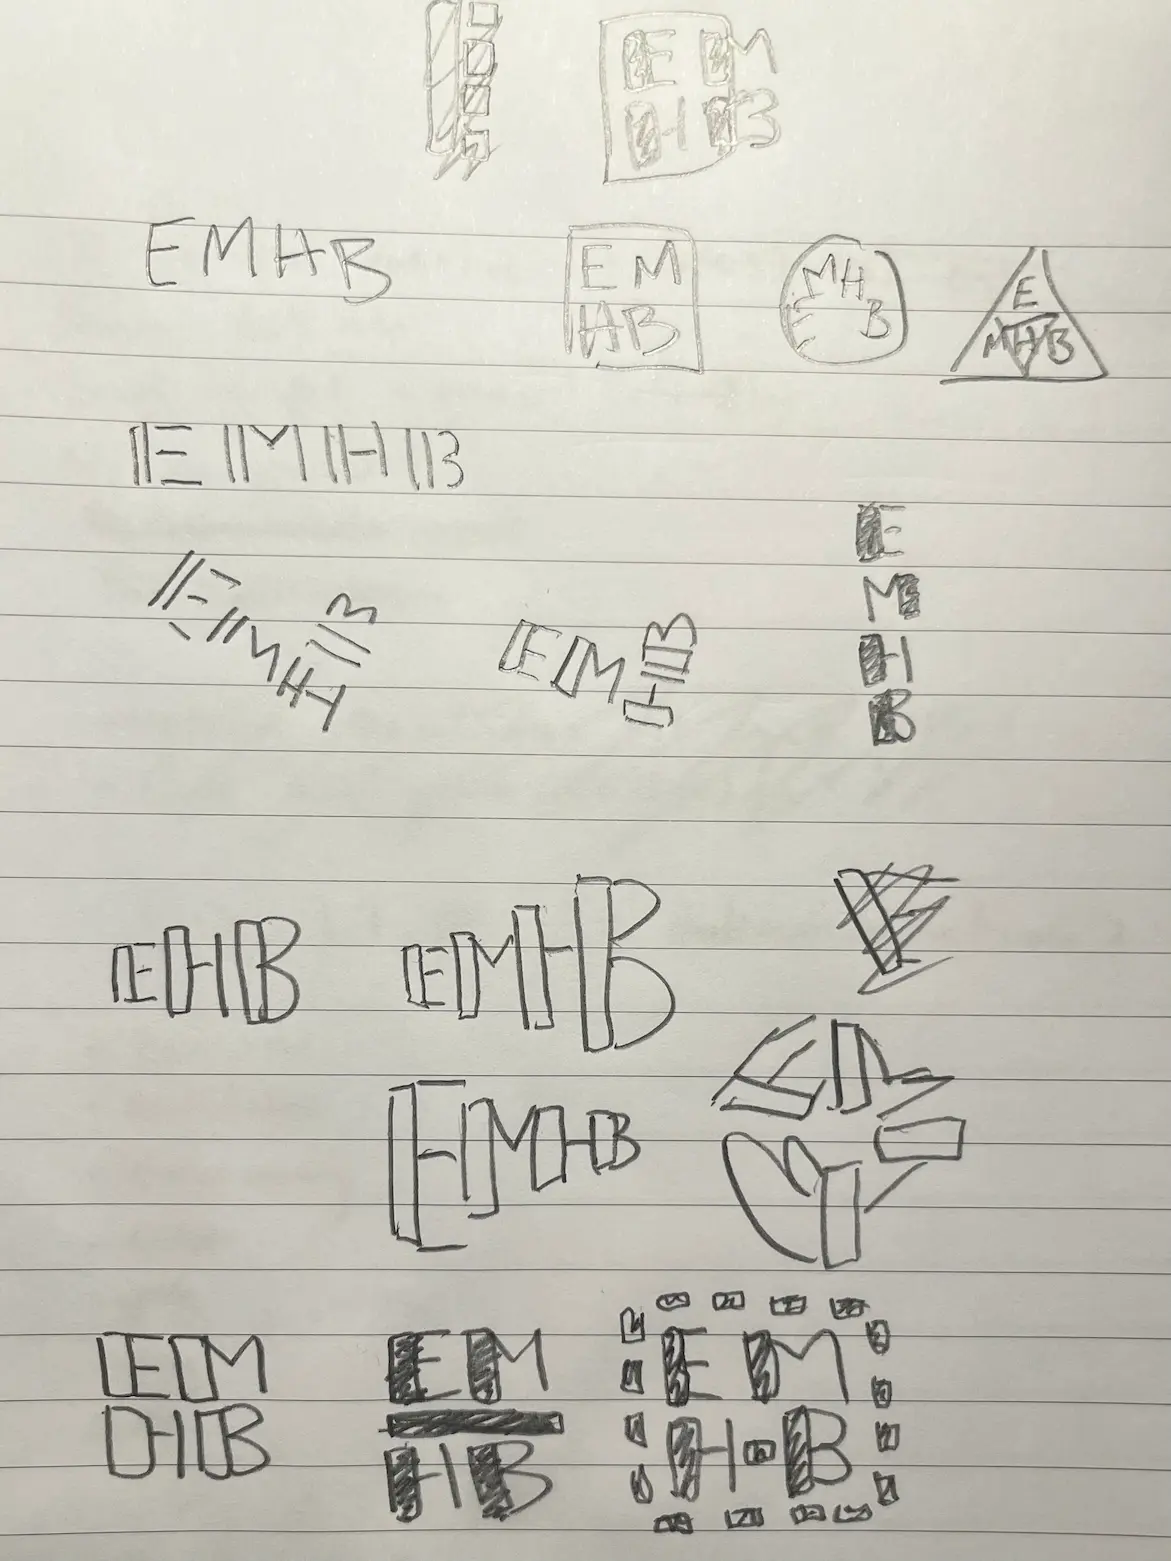 E M
H B
E M H B
E M
H B
E M H B
E
M H B
E M H B
E M H B
E M H B
E
M
H
B
E H B
E M H B
E M H B
E M
H B
E M
H B
E M
H B